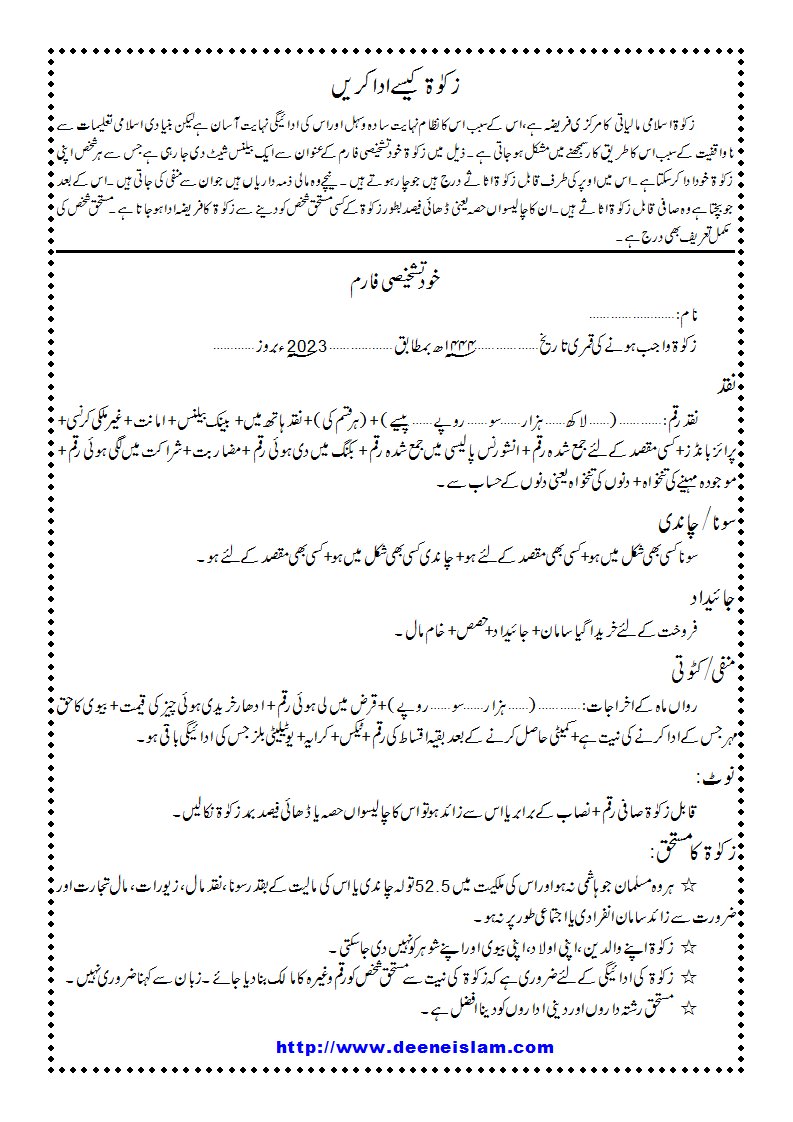 زکوٰۃ کیسے ادا کریں
زکوٰۃ اسلامی مالیاتی کا مرکزی فریضہ ہے، اس کے سبب اس کا نظام نہایت سادہ و سہل اور اس کی ادائیگی نہایت آسان ہے لیکن بنیادی اسلامی تعلیمات سے
ناواقفیت کے سبب اس کا طریق کار سمجھنے میں مشکل ہو جاتی ہے۔ ذیل میں زکوٰۃ خود تشخیصی فارم کے عنوان سے ایک بیلنس شیٹ دی جا رہی ہے جس سے ہر شخص اپنی
زکوٰۃ خود ادا کر سکتا ہے۔ اس میں اوپر کی طرف قابل زکوٰۃ اثاثے درج ہیں جو چار ہوتے ہیں۔ نیچے وہ مالی ذمہ داریاں ہیں جو ان سے منفی کی جاتی ہیں۔ اس کے بعد
جو بچتا ہے وہ صافی قابل زکوٰۃ اثاثے ہیں۔ ان کا چالیسواں حصہ یعنی ڈھائی فیصد بطور زکوٰۃ کے کسی مستحق شخص کو دینے سے زکوٰۃ کا فریضہ ادا ہو جاتا ہے۔ مستحق شخص کی
مکمل تعریف بھی درج ہے۔
خود تشخیصی فارم
نام: ........................
زکوٰۃ واجب ہونے کی قمری تاریخ ................. ۱۴۴۴ھ بمطابق .................. 2023ء بروز ............
نقد
نقد رقم: ............ (...... لاکھ ...... ہزار ...... سو ...... روپے ...... پیسے) + (ہر قسم کی) + نقد ہاتھ میں + بینک بیلنس + امانت + غیر ملکی کرنسی +
پرائز بانڈز + کسی مقصد کے لئے جمع شدہ رقم + انشورنس پالیسی میں جمع شدہ رقم + بکنگ میں دی ہوئی رقم + مضاربت + شراکت میں لگی ہوئی رقم +
موجودہ مہینے کی تنخواہ + دنوں کی تنخواہ یعنی دنوں کے حساب سے۔
سونا / چاندی
سونا کسی بھی شکل میں ہو + کسی بھی مقصد کے لئے ہو + چاندی کسی بھی شکل میں ہو + کسی بھی مقصد کے لئے ہو۔
جائیداد
فروخت کے لئے خریدا گیا سامان + جائیداد + حصص + خام مال۔
منفی / کٹوتی
رواں ماہ کے اخراجات: ............ (...... ہزار ...... سو ...... روپے) + قرض میں لی ہوئی رقم + ادھار خریدی ہوئی چیز کی قیمت + بیوی کا حق
مہر جس کے ادا کرنے کی نیت ہے + کمیٹی حاصل کرنے کے بعد بقیہ اقساط کی رقم + ٹیکس + کرایہ + یوٹیلیٹی بلز جس کی ادائیگی باقی ہو۔
نوٹ:
قابل زکوٰۃ صافی رقم + نصاب کے برابر یا اس سے زائد ہو تو اس کا چالیسواں حصہ یا ڈھائی فیصد بمد زکوٰۃ نکالیں۔
زکوٰۃ کا مستحق:
☆ ہر وہ مسلمان جو ہاشمی نہ ہو اور اس کی ملکیت میں 52.5 تولہ چاندی یا اس کی مالیت کے بقدر سونا، نقد مال، زیورات، مال تجارت اور
ضرورت سے زائد سامان انفرادی یا اجتماعی طور پر نہ ہو۔
☆ زکوٰۃ اپنے والدین، اپنی اولاد، اپنی بیوی اور اپنے شوہر کو نہیں دی جا سکتی۔
☆ زکوٰۃ کی ادائیگی کے لئے ضروری ہے کہ زکوٰۃ کی نیت سے مستحق شخص کو رقم وغیرہ کا مالک بنا دیا جائے۔ زبان سے کہنا ضروری نہیں۔
☆ مستحق رشتہ داروں اور دینی اداروں کو دینا افضل ہے۔
http://www.deeneislam.com